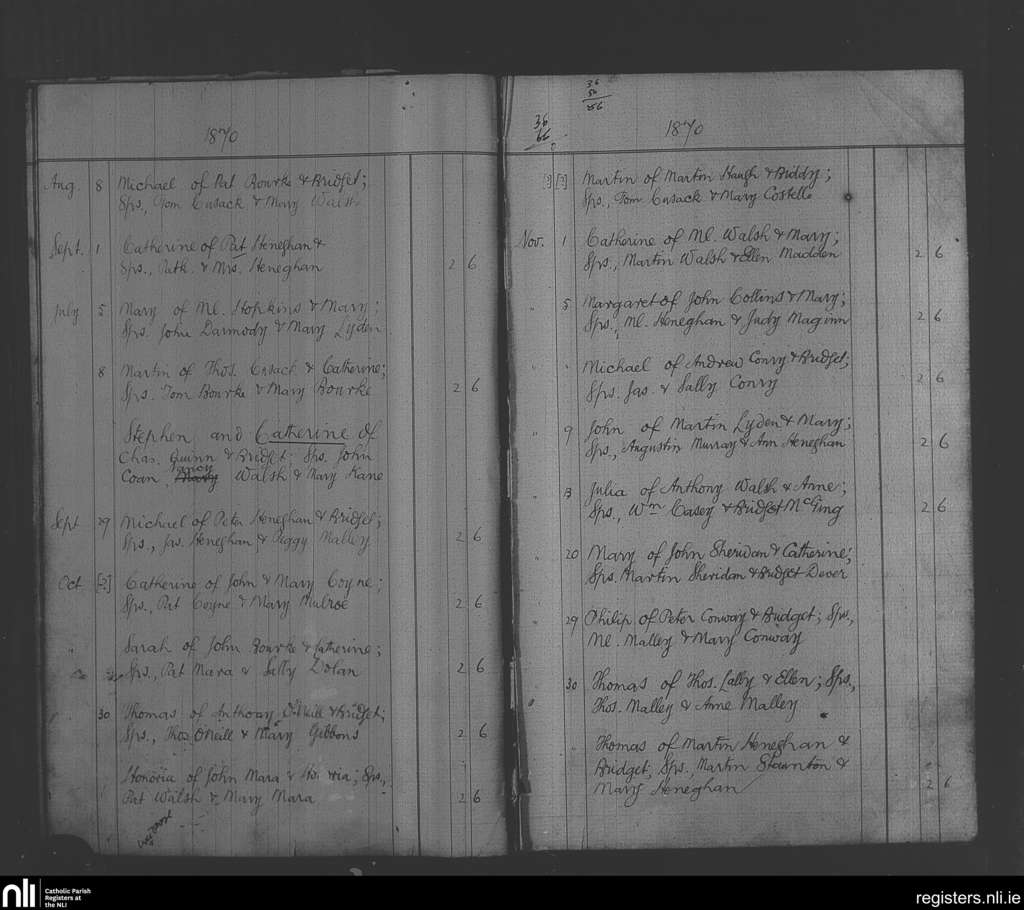 1870
Aug. 8 Michael of Pat Bourke & Bridget;
Sps., Tom Cusack & Mary Walsh
Sept. 1 Catherine of Pat Heneghan &
Sps., Patk. & Mrs. Heneghan 2 6
July 5 Mary of Ml. Hopkins & Mary;
Sps. John Darmody & Mary Lyden
8 Martin of Thos. Cusack & Catherine;
Sps. Tom Bourke & Mary Bourke 2 6
Stephen and Catherine of
Chas. Quinn & Bridget; Sps. John
Coan, Nancy Walsh & Mary Kane
Sept 29 Michael of Peter Heneghan & Bridget;
Sps., Jas. Heneghan & Peggy Malley 2 6
Oct [?] Catherine of John & Mary Coyne;
Sps., Pat Coyne & Mary Mulroe 2 6
" Sarah of John Bourke & Catherine;
Sps., Pat Mara & Sally Dolan 2 6
" 30 Thomas of Anthony O'Neill & Bridget;
Sps., Thos. O'Neill & Mary Gibbons 2 6
Honoria of John Mara & Honoria; Sps.,
Pat Walsh & Mary Mara 2 6
36
66
1870
[?] [?] Martin of Martin Haugh & Biddy;
Sps., Tom Cusack & Mary Costello
Nov. 1 Catherine of Ml. Walsh & Mary;
Sps., Martin Walsh & Ellen Madden 2 6
" 5 Margaret of John Collins & Mary;
Sps., Ml. Heneghan & Judy Maginn 2 6
" " Michael of Andrew Conry & Bridget;
Sps. Jas. & Sally Conry 2 6
" 9 John of Martin Lyden & Mary;
Sps., Augustin Murray & Ann Heneghan 2 6
" 13 Julia of Anthony Walsh & Anne;
Sps., Wm Casey & Bridget McGing 2 6
" 20 Mary of John Sheridan & Catherine;
Sps. Martin Sheridan & Bridget Dever
" 29 Philip of Peter Conway & Bridget; Sps.,
Ml. Malley & Mary Conway
" 30 Thomas of Thos. Lally & Ellen; Sps.,
Thos. Malley & Anne Malley
" Thomas of Martin Heneghan &
Bridget; Sps., Martin Staunton &
Mary Heneghan 2 6
nli
Catholic Parish
Registers at
the NLI
registers.nli.ie